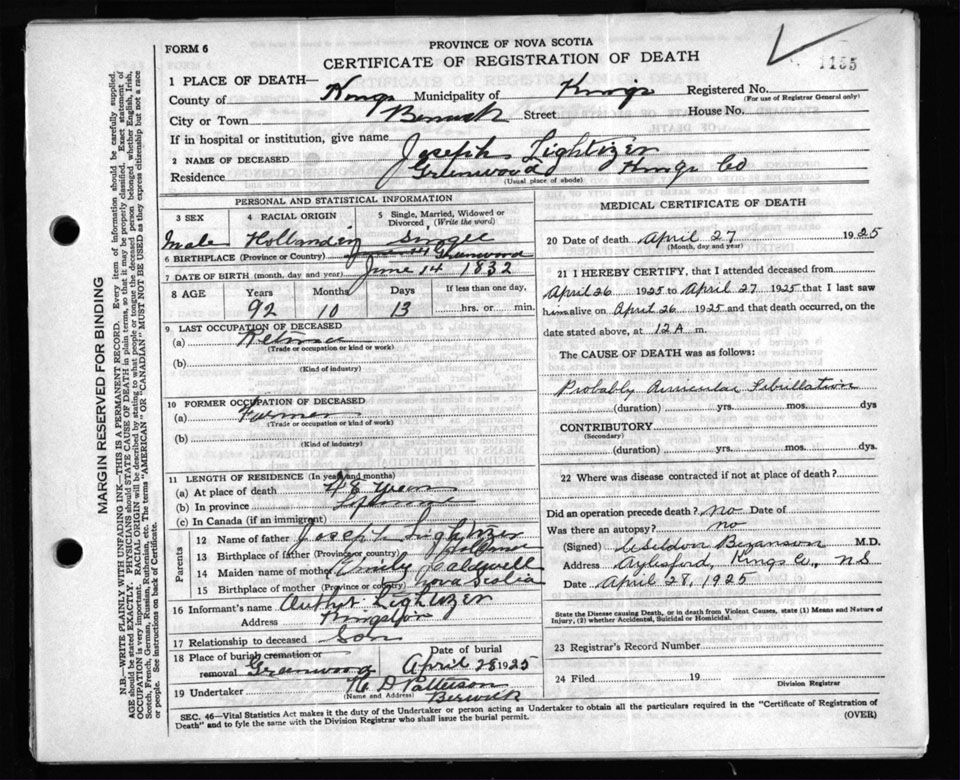 FORM 6
PROVINCE OF NOVA SCOTIA
CERTIFICATE OF REGISTRATION OF DEATH
1155
1 PLACE OF DEATH—
County of Kings Municipality of Kings Registered No.
(For use of Registrar General only)
City or Town Berwick Street House No.
If in hospital or institution, give name
2 NAME OF DECEASED Joseph Lightizer
Residence Greenwood Kings Co
(Usual place of abode)
PERSONAL AND STATISTICAL INFORMATION
3 SEX 4 RACIAL ORIGIN 5 Single, Married, Widowed or Divorced, (Write the word)
Male Hollander Single
6 BIRTHPLACE (Province or Country) Greenwood
7 DATE OF BIRTH (month, day and year) June 14 1832
8 AGE Years Months Days If less than one day,
92 10 13 hrs. or min.
9 LAST OCCUPATION OF DECEASED
(a) Retired
(Trade or occupation or kind or work)
(b)
(Kind of industry)
10 FORMER OCCUPATION OF DECEASED
(a) Farmer
(Trade or occupation or kind or work)
(b)
(Kind of industry)
11 LENGTH OF RESIDENCE (In years and months)
(a) At place of death years
(b) In province
(c) In Canada (if an immigrant)
Parents
12 Name of father Joseph Lightizer
13 Birthplace of father (Province or country)
14 Maiden name of mother Emily Caldwell
15 Birthplace of mother (Province or country) Nova Scotia
16 Informant's name Lightizer
Address Kingston
17 Relationship to deceased Son
18 Place of burial cremation or removal Greenwood
Date of burial April 28 1925
19 Undertaker H D Patterson
(Name and Address) Berwick
MEDICAL CERTIFICATE OF DEATH
20 Date of death April 27 1925
(Month, day and year)
21 I HEREBY CERTIFY, that I attended deceased from
April 26 1925 to April 27 1925 that I last saw
him alive on April 26 1925 and that death occurred, on the
date stated above, at 12 A m.
The CAUSE OF DEATH was as follows:
Probably Auricular Fibrillation
(duration) yrs. mos. dys
CONTRIBUTORY
(Secondary)
(duration) yrs. mos. dys.
22 Where was disease contracted if not at place of death?
Did an operation precede death? no Date of
Was there an autopsy? no
(Signed) Weldon Bezanson M.D.
Address Aylesford, Kings Co., N S
Date April 28, 1925
State the Disease causing Death, or in death from Violent Causes, state (1) Means and Nature of
Injury, (2) whether Accidental, Suicidal or Homicidal.
23 Registrar's Record Number
24 Filed 19
Division Registrar
SEC. 46—Vital Statistics Act makes it the duty of the Undertaker or person acting as Undertaker to obtain all the particulars required in the "Certificate of Registration of
Death" and to fyle the same with the Division Registrar who shall issue the burial permit. (OVER)
MARGIN RESERVED FOR BINDING
N.B.—WRITE PLAINLY WITH UNFADING INK—THIS IS A PERMANENT RECORD. Every item of information should be carefully supplied.
AGE should be stated EXACTLY. PHYSICIANS should STATE CAUSE OF DEATH in plain terms, so that it may be properly classified. Exact statement of
OCCUPATION is very important. RACIAL ORIGIN will be described by stating to what people or tongue the deceased person belonged whether English, Irish,
Scotch, French, German, Russian, Ruthenian, etc. The terms "AMERICAN" OR "CANADIAN" MUST NOT BE USED as they express citizenship but not a race
or people. See instructions on back of Certificate.